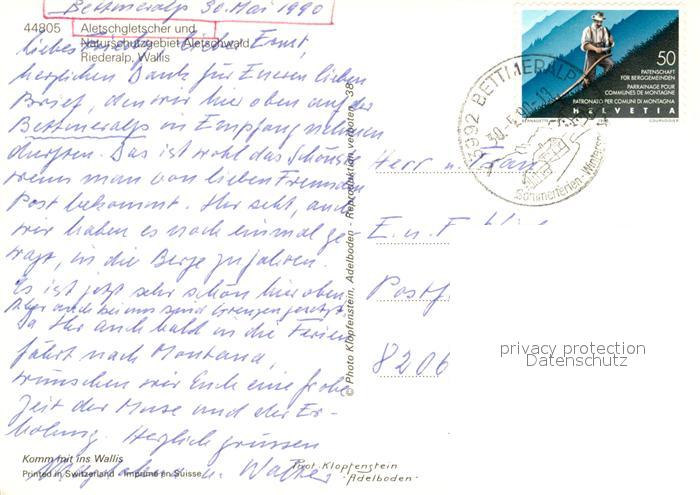 Bettmeralp 30. Mai 1990
44805 Aletschgletscher und
Naturschutzgebiet Aletschwald
Riederalp, Wallis
Ernst,
herzlichen Dank für Eueren lieben
Brief, den wir hier oben auf der
Bettmeralp in Empfang nehmen
durften. Das ist wohl das Schönste
wenn man von lieben Freunden
Post bekommt. Ihr seht, auch
wir haben es noch einmal ge-
wagt, in die Berge zu fahren.
Es ist jetzt sehr schön hier oben
Aber auch bei uns sind Grenzen gesetzt.
Da Ihr auch bald in die Ferien
fährt nach Montana,
wünschen wir Euch eine frohe
Zeit der Muse und der Er-
holung. Herzlich grüssen
u. Walter
Komm mit ins Wallis
Printed in Switzerland - Imprimé en Suisse
© Photo Klopfenstein, Adelboden - Reproduktion verboten 38
Phot. Klopfenstein
Adelboden
50
PATENSCHAFT
FÜR BERGGEMEINDEN
PARRAINAGE POUR
COMMUNES DE MONTAGNE
PATRONATO PER COMUNI DI MONTAGNA
HELVETIA
COURVOISIER
3992 BETTMERALP
30.-5.90-11
Sommerferien - Wintersport
Herr u. Frau
E. u. F.
Postf
8206
privacy protection
Datenschutz